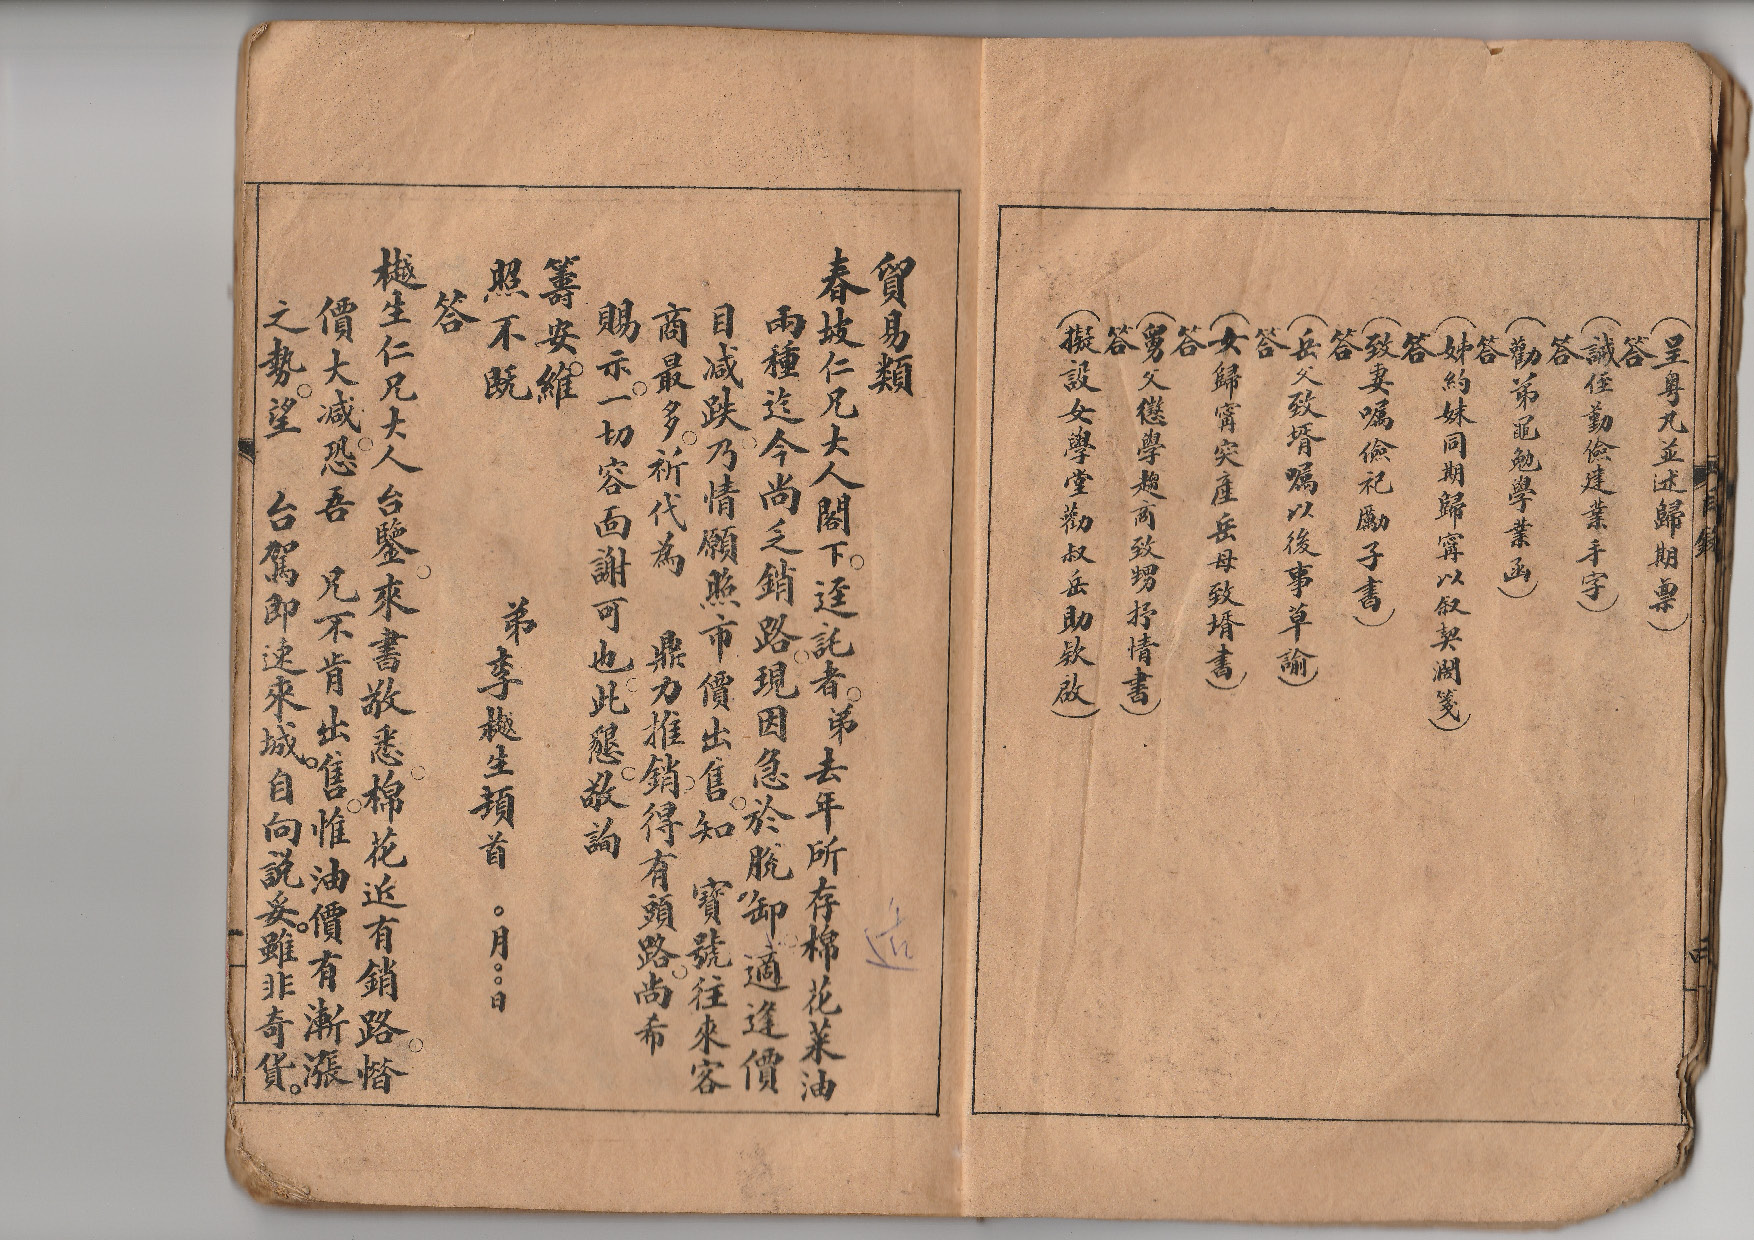 呈粵凡並述歸期稟
答
誡侄勤儉建業手字
答
勸弟黽勉學業函
答
姊約妹同期歸寧以叙契濶箋
答
致妻嘱儉祀勵子書
答
岳父致壻嘱以後事草諭
答
女歸寧突產岳母致壻書
答
舅父慫學趨商致甥抒情書
答
擬設女學堂勸叔岳助欵啟
目錄
二
貿易類
春坡仁兄大人閣下。逕託者。弟去年所存棉花菜油
兩種迄今尚乏銷路。現因急於脫卸。適逢價
目减跌。乃情願照市價出售。知 寶號往來客
商最多。祈代為 鼎力推銷。得有頭路。尚希
賜示。一切容面謝可也。此懇。敬詢
籌安。維
照不旣
弟李樾生頓首 。月。。日
答
樾生仁兄大人台鑒。來書敬悉。棉花近有銷路。惜
價大减。恐吾 兄不肯出售。惟油價有漸漲
之勢。望 台駕即速來城。自向説妥。雖非奇貨。